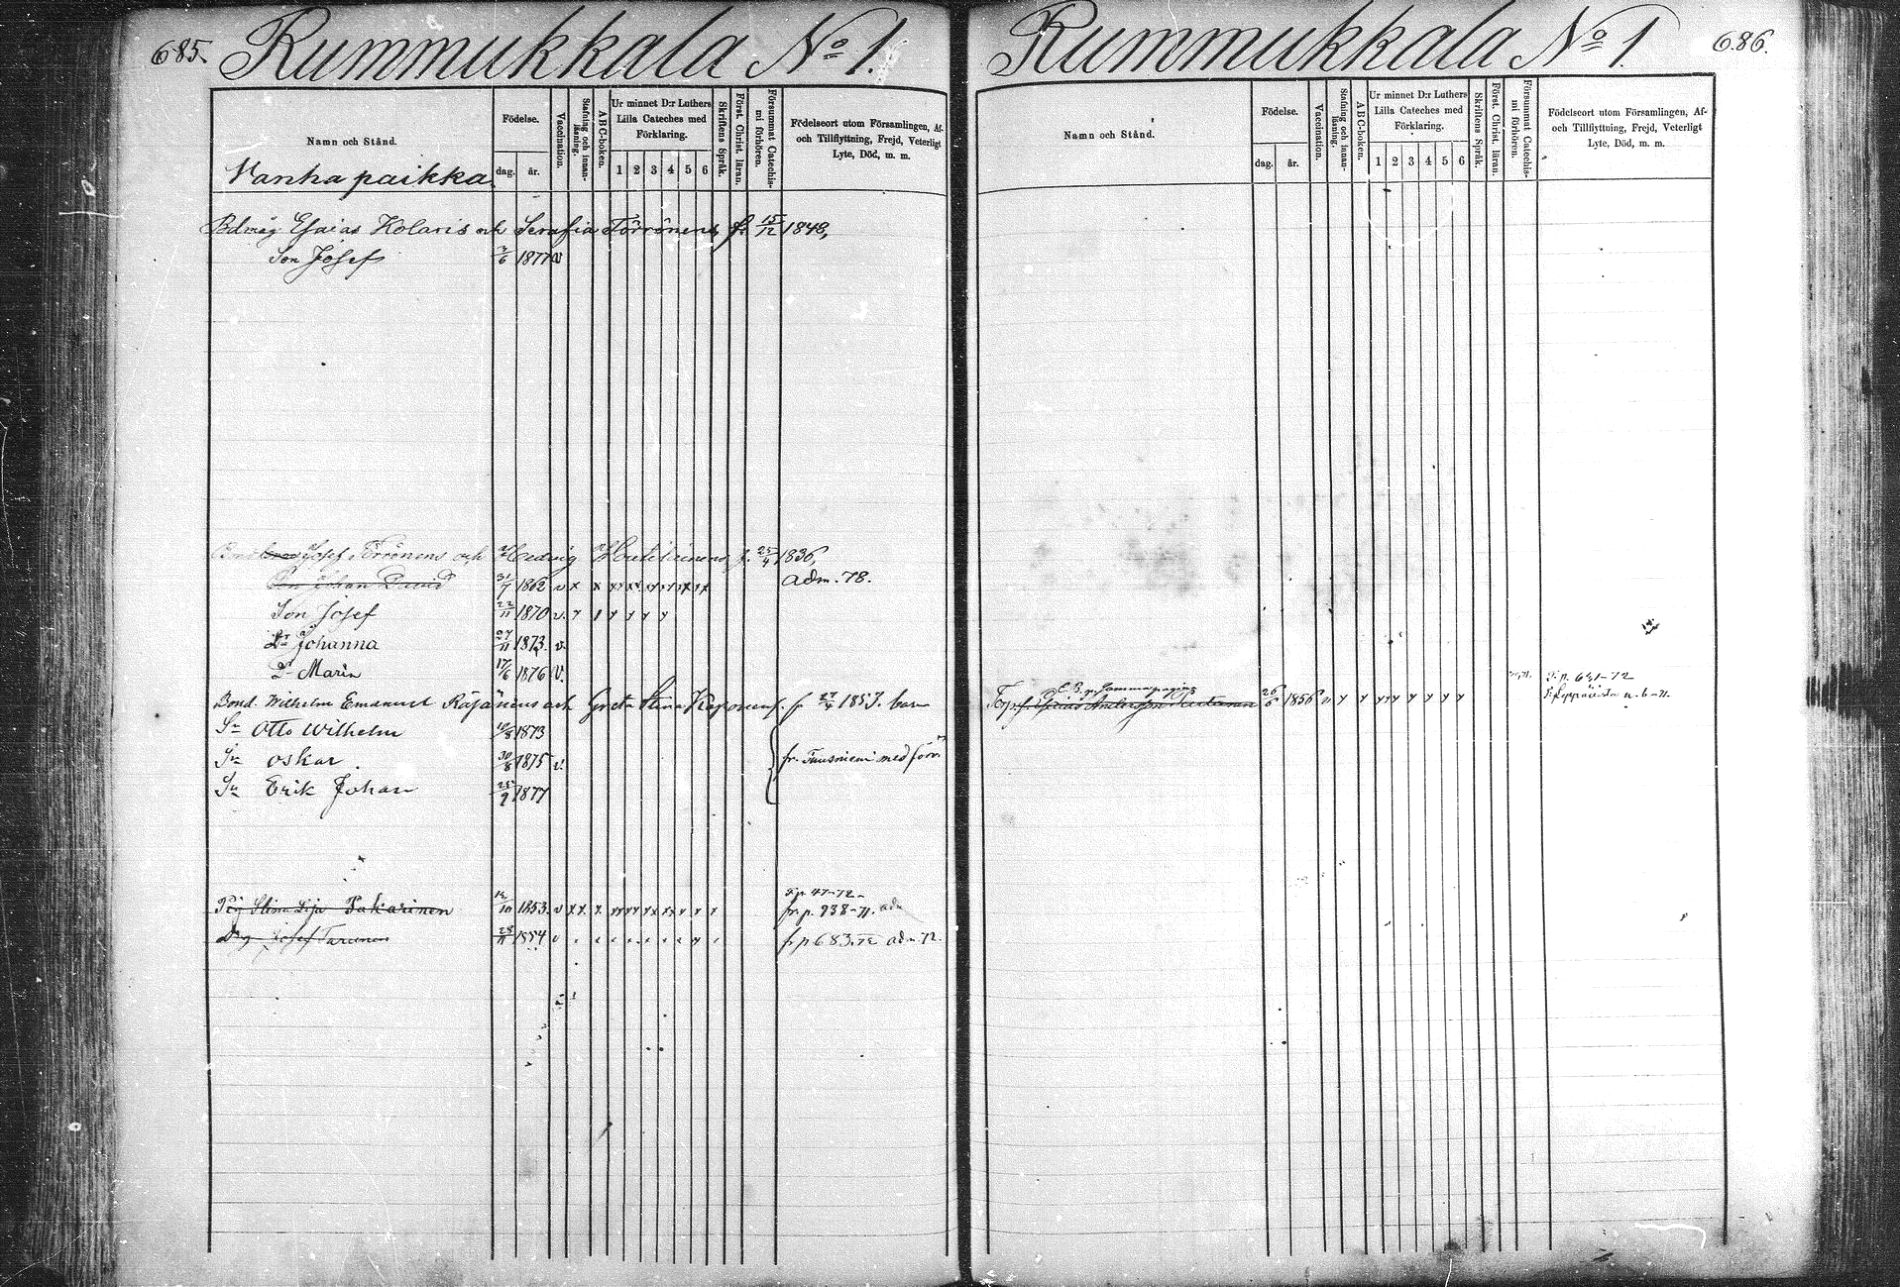 685. Rummukkala No 1.
Namn och Stånd.
Födelse.
dag.
år.
Vaccination.
Stafning och innan-läsning.
ABC-boken.
Ur minnet D:r Luthers
Lilla Cateches med
Förklaring.
1 2 3 4 5 6
Skriftens Språk.
Först. Christ. läran.
Försummat Catechis-
mi förhören.
Födelseort utom Församlingen, Af-
och Tillflyttning, Frejd, Veterligt
Lyte, Död, m. m.
Vanha paikka
Esaias Kolaris och Serafia Törrönens f. 15/12 1848,
Son Josef 1877 v
Josef Törrönens och Hedvig f. 25/4 1836,
Son Johan David 31/7 1862 v x x adm. 78.
Son Josef 22/11 1870 v.
Dr Johanna 27/11 1873 v.
Dr Maria 17/6 1876 v.
Bond. Wilhelm Emanuel Räsänens och Greta Stina f. 27/4 1853. barn
Sn Otto Wilhelm 1873
Sn Oskar 30/8 1875 v.
Sn Erik Johan 25/9 1877
fr. Tuusniemi med förä
Pig Stina Lisa Pakarinen 1853. v
T. p. 47-72
fr. p. 938-71. adm
Drg Josef 28/11 1854
fr p 683. 72 adm 72.
686. Rummukkala No 1.
Namn och Stånd.
Födelse.
dag.
år.
Vaccination.
Stafning och innan-
läsning.
ABC-boken.
Ur minnet D:r Luthers
Lilla Cateches med
Förklaring.
1 2 3 4 5 6
Skriftens Språk.
Först. Christ. läran.
Försummat Catechis-
mi förhören.
Födelseort utom Församlingen, Af-
och Tillflyttning, Frejd, Veterligt
Lyte, Död, m. m.
26/6 1856 v
T. p. 641-72